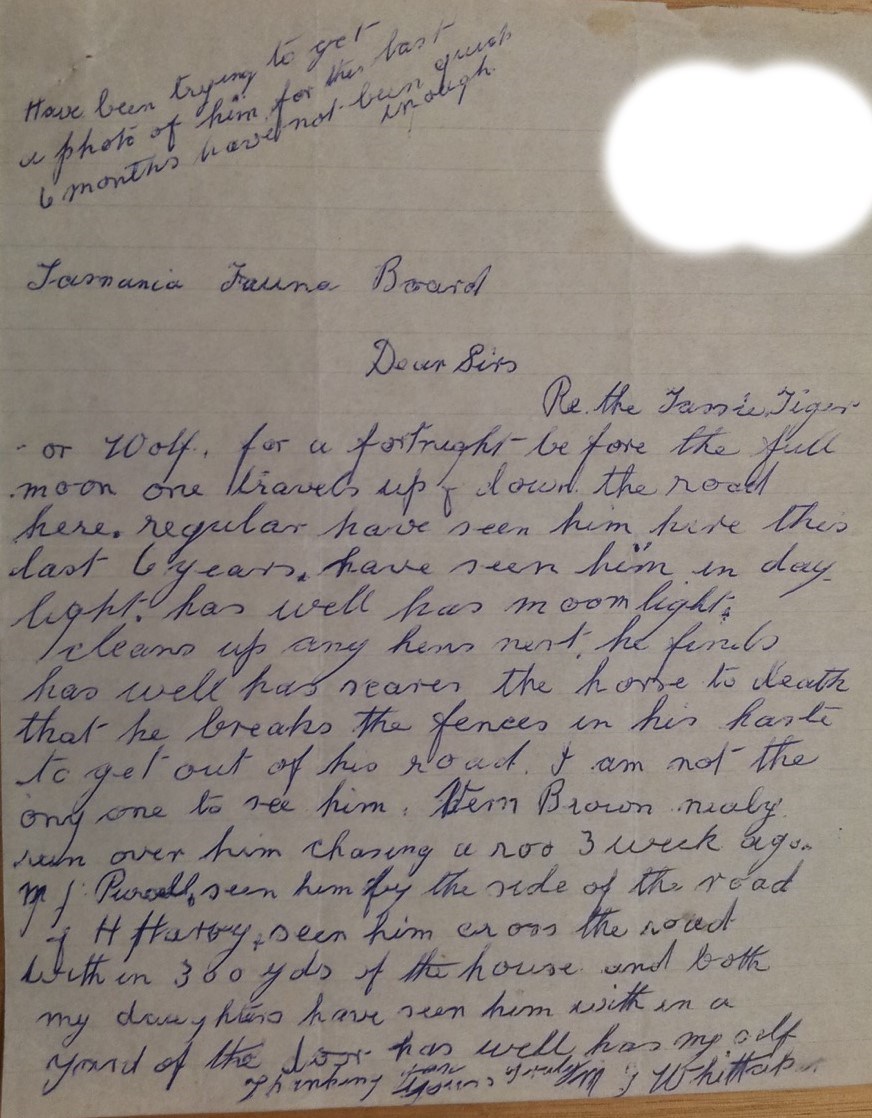 Have been trying to get
a photo of him for this last
6 months have not been quick
enough.
Tasmania Fauna Board
Dear Sirs
Re. the Tassie Tiger
- or Wolf. for a fortnight before the full
moon one travels up & down the road
here. regular have seen him here this
last 6 years. have seen him in day
light. has well has moomlight.
cleans up any hens nest. he finds
has well has scares the horse to death
that he breaks the fences in his haste
to get out of his road. I am not the
ony one to see him. Vern Brown nealy
run over him chasing a roo 3 week ago.
M J Purcell, seen him by the side of the road
J H Harvy, seen him cross the road
with in 300 yds of the house and both
my daughters have seen him with in a
yard of the door has well has my self
Thanking Yours truly M J